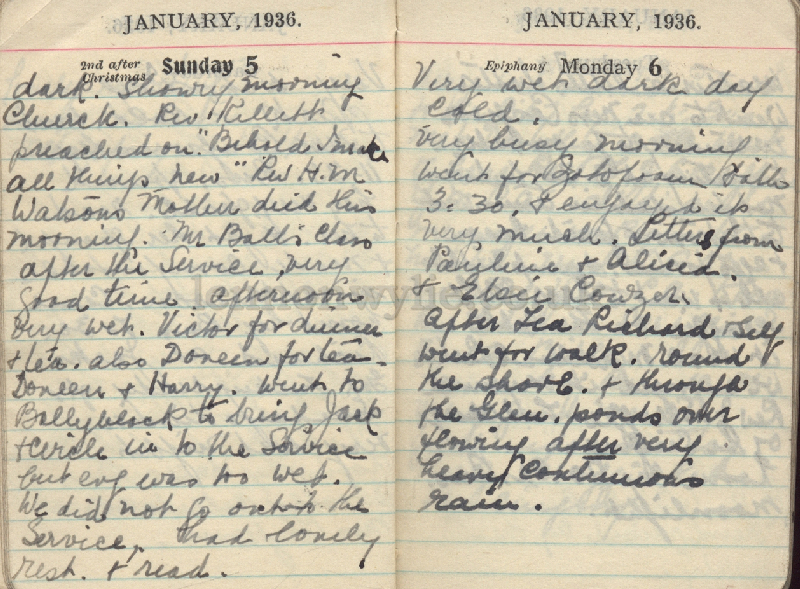 JANUARY, 1936.
2nd after Christmas Sunday 5
dark. Showry morning
Church. Rev. Killett
preached on "Behold I make
all things new" Rev H.M
Watsons Mother died this
morning. Mr Balls Class
after the Service, very
good time afternoon
Very wet. Victor for dinner
& tea. also Doreen for tea -
Doreen & Harry. went to
Ballyblack to bring Jack
& Circle in to the Service
but evg was too wet.
We did not go out to the
Service, had lovely
rest. & read.
JANUARY, 1936.
Epiphany Monday 6
Very wet dark day
cold.
very busy morning
went for
3:30, & enjoyed it
very much. Letters from
Pauline & Alicia.
& Elsie
After Tea Richard & Self
went for walk. round
the shore. & through
the Glen. ponds over
flowing after very
heavy continuous
rain.